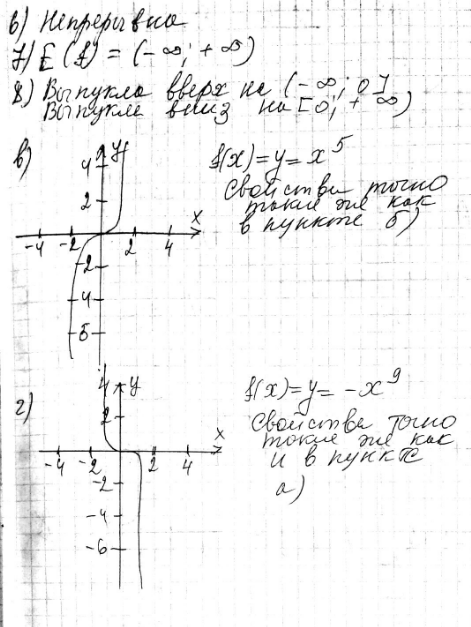 6) Непрерывна
7) E(f) = (-∞; +∞)
8) Выпукла вверх на (-∞; 0]
Выпукла вниз на [0; +∞)
в)
y
4
2
x
-4 -2 2 4
-2
-4
-5
f(x) = y = x⁵
Свойства точно
такие же как
в пункте б)
г)
4 y
2
x
-4 -2 2 4
-2
-4
-6
f(x) = y = -x⁹
Свойства точно
такие же как
и в пункте
а)